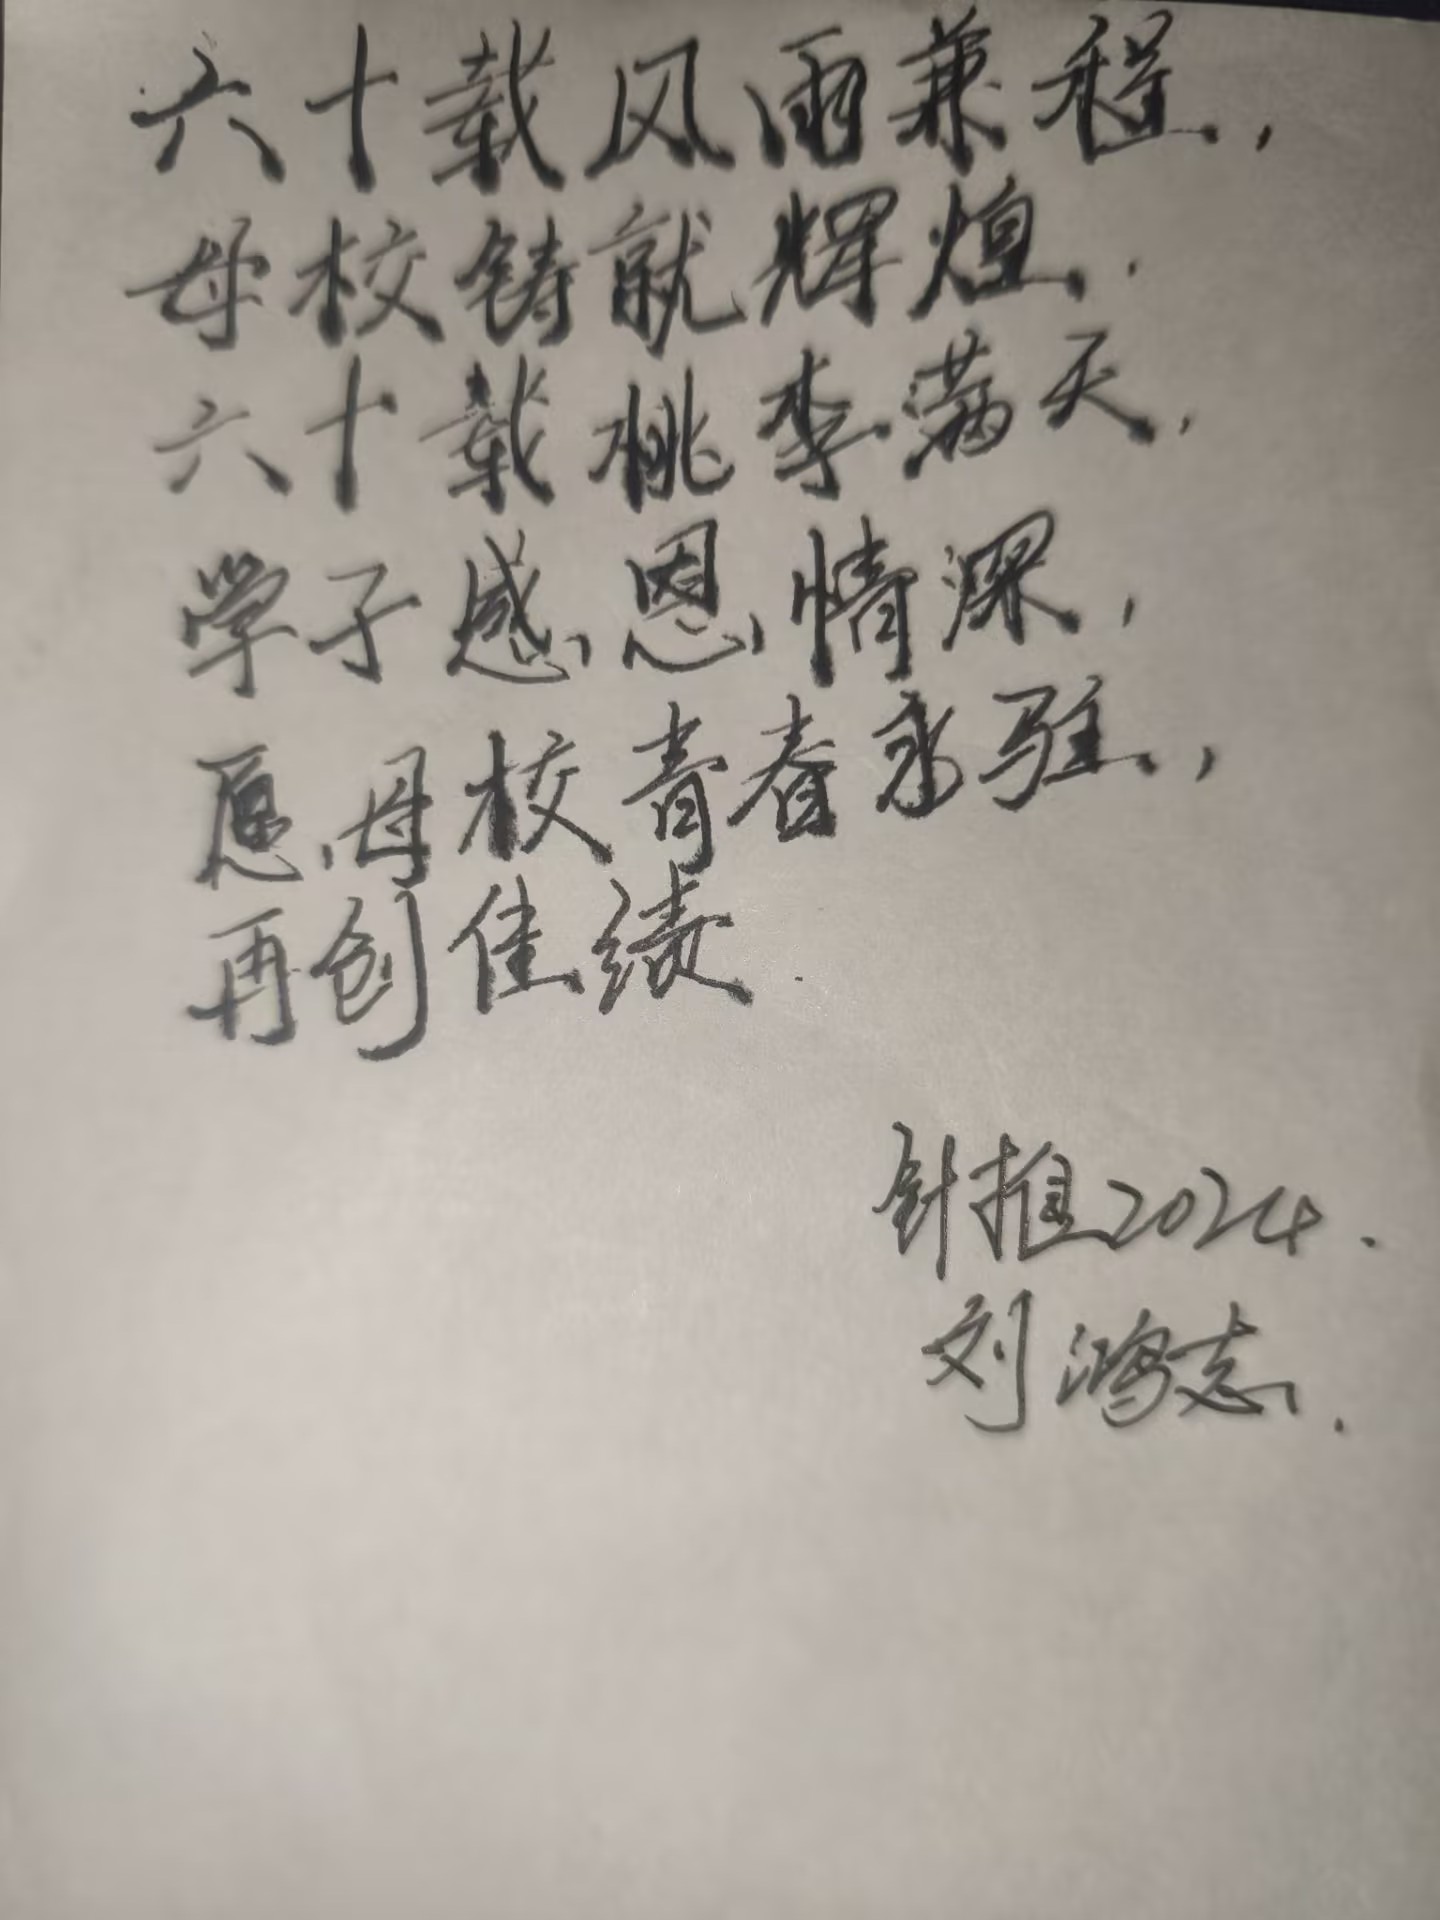 六十载风雨兼程，
母校铸就辉煌.
六十载桃李满天，
学子感恩情深，
愿母校青春永驻，
再创佳绩.
针推2024.
刘鸿志.